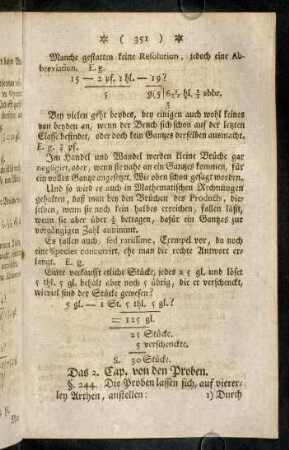 * ( 351 ) *
Manche gestatten keine Resolution, jedoch eine Ab-
breviation. E. g.
15 — 2 pf. 1 hl. — 19?
5
Bey vielen geht beydes, bey einigen auch wohl keines
von beyden an, wenn der Bruch sich schon auf der letzten
Classe befindet, oder doch kein Gantzes derselben ausmacht.
E. g. ¾ pf.
Im Handel und Wandel werden kleine Brüche gar
negligiret, oder, wenn sie nahe an ein Gantzes kommen, für
ein volles Gantze angesetzet. Wie oben schon gesagt worden.
Und so wird es auch in Mathematischen Rechnungen
gehalten, daß man bey den Brüchen des Products, die-
selben, wenn sie noch kein halbes erreichen, fallen läßt,
wenn sie aber über ½ betragen, dafür ein Gantzes zur
vorgängigen Zahl annimmt.
Es fallen auch, sed rarissime, Exempel vor, da noch
eine Species concurrirt, eht man die rechte Antwort er-
langt. E. g.
Einer verkaufft etliche Stücke, jedes à 5 gl. und löset
5 thl. 5 gl. behält aber noch 5 übrig, die er verschenckt,
wieviel sind der Stücke gewesen?
5 gl. — 1 St. 5 thl. 5 gl.?
= 125 gl.
25 Stücke.
5 verschenckte.
S. 30 Stücke.
Das 2. Cap. von den Proben.
§. 244. Die Proben lassen sich, auf vierer-
ley Arthen, anstellen: 1) Durch